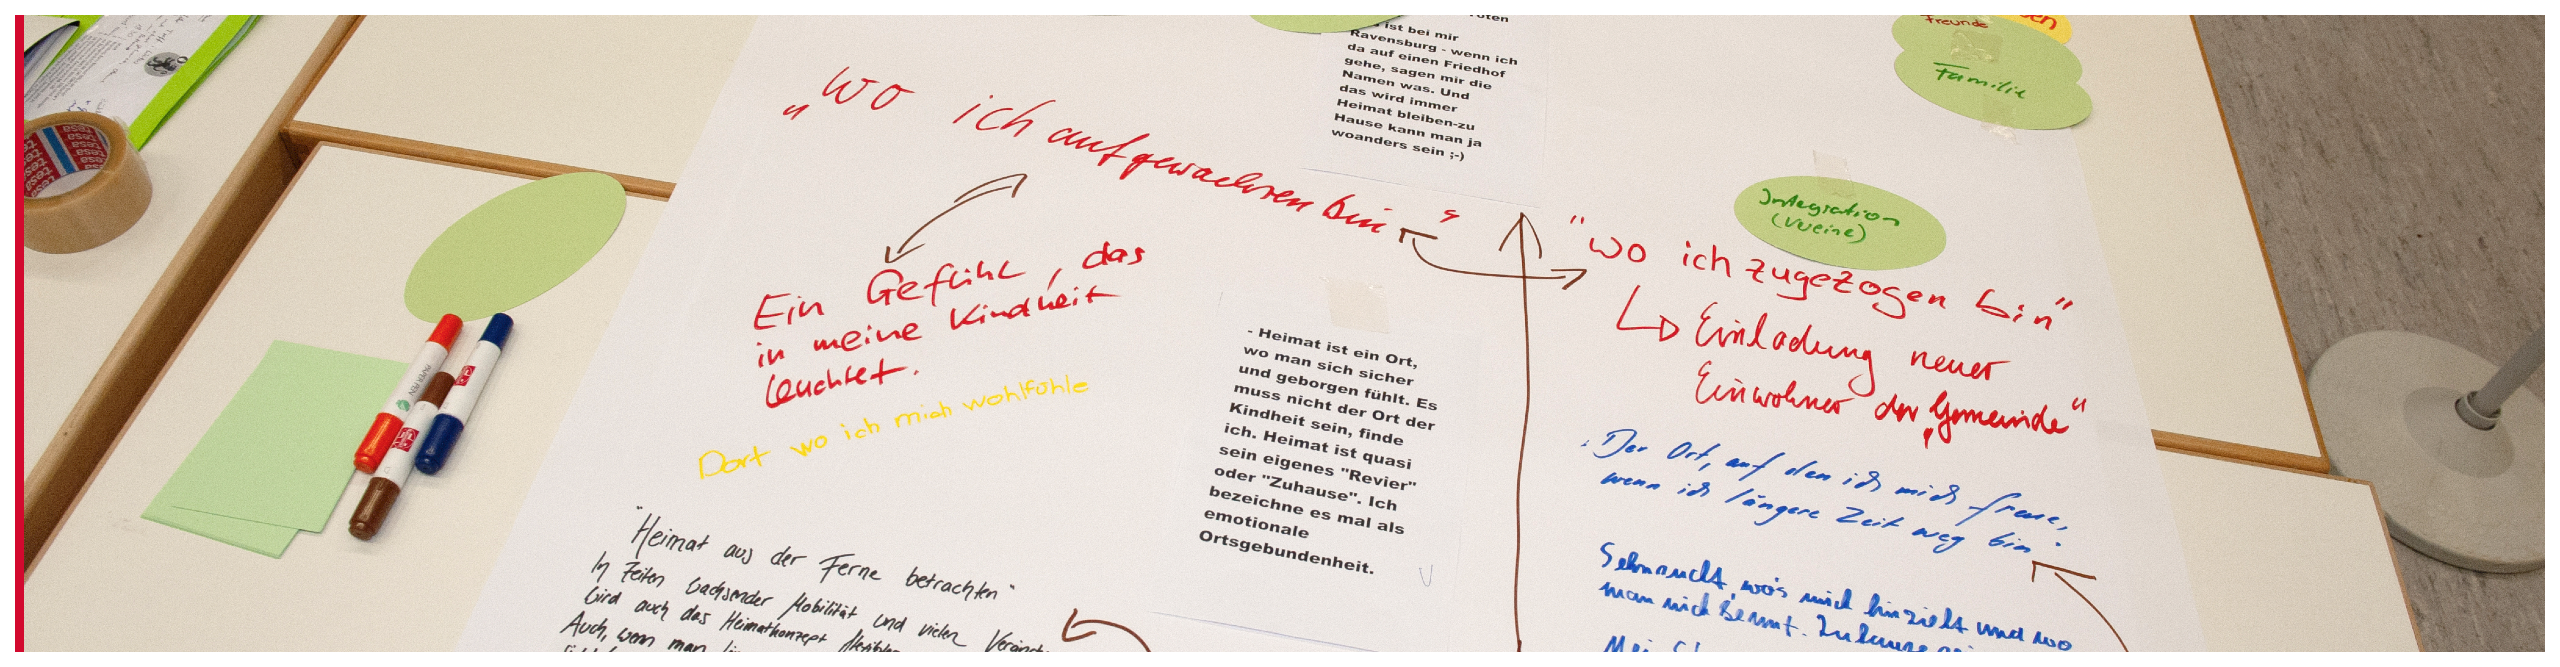 ist bei mir
Ravensburg - wenn ich
da auf einen Friedhof
gehe, sagen mir die
Namen was. Und
das wird immer
Heimat bleiben-zu
Hause kann man ja
woanders sein ;-)
Freunde
Familie
tesa
„Wo ich aufgewachsen bin"
Integration
(Vereine)
"wo ich zugezogen bin"
Einladung neuer
Einwohner der „Gemeinde"
Ein Gefühl, das
in meine Kindheit
leuchtet.
Dort wo ich mich wohlfühle
- Heimat ist ein Ort,
wo man sich sicher
und geborgen fühlt. Es
muss nicht der Ort der
Kindheit sein, finde
ich. Heimat ist quasi
sein eigenes "Revier"
oder "Zuhause". Ich
bezeichne es mal als
emotionale
Ortsgebundenheit.
Der Ort, auf den ich mich freue,
wenn ich längere Zeit weg bin.
Sehnsucht, wo's mich hinzieht und wo
man mich kennt. Zuhause
"Heimat aus der Ferne betrachten"
In Zeiten wachsender Mobilität und vielen
wird auch das Heimatkonzept
Auch, wenn man